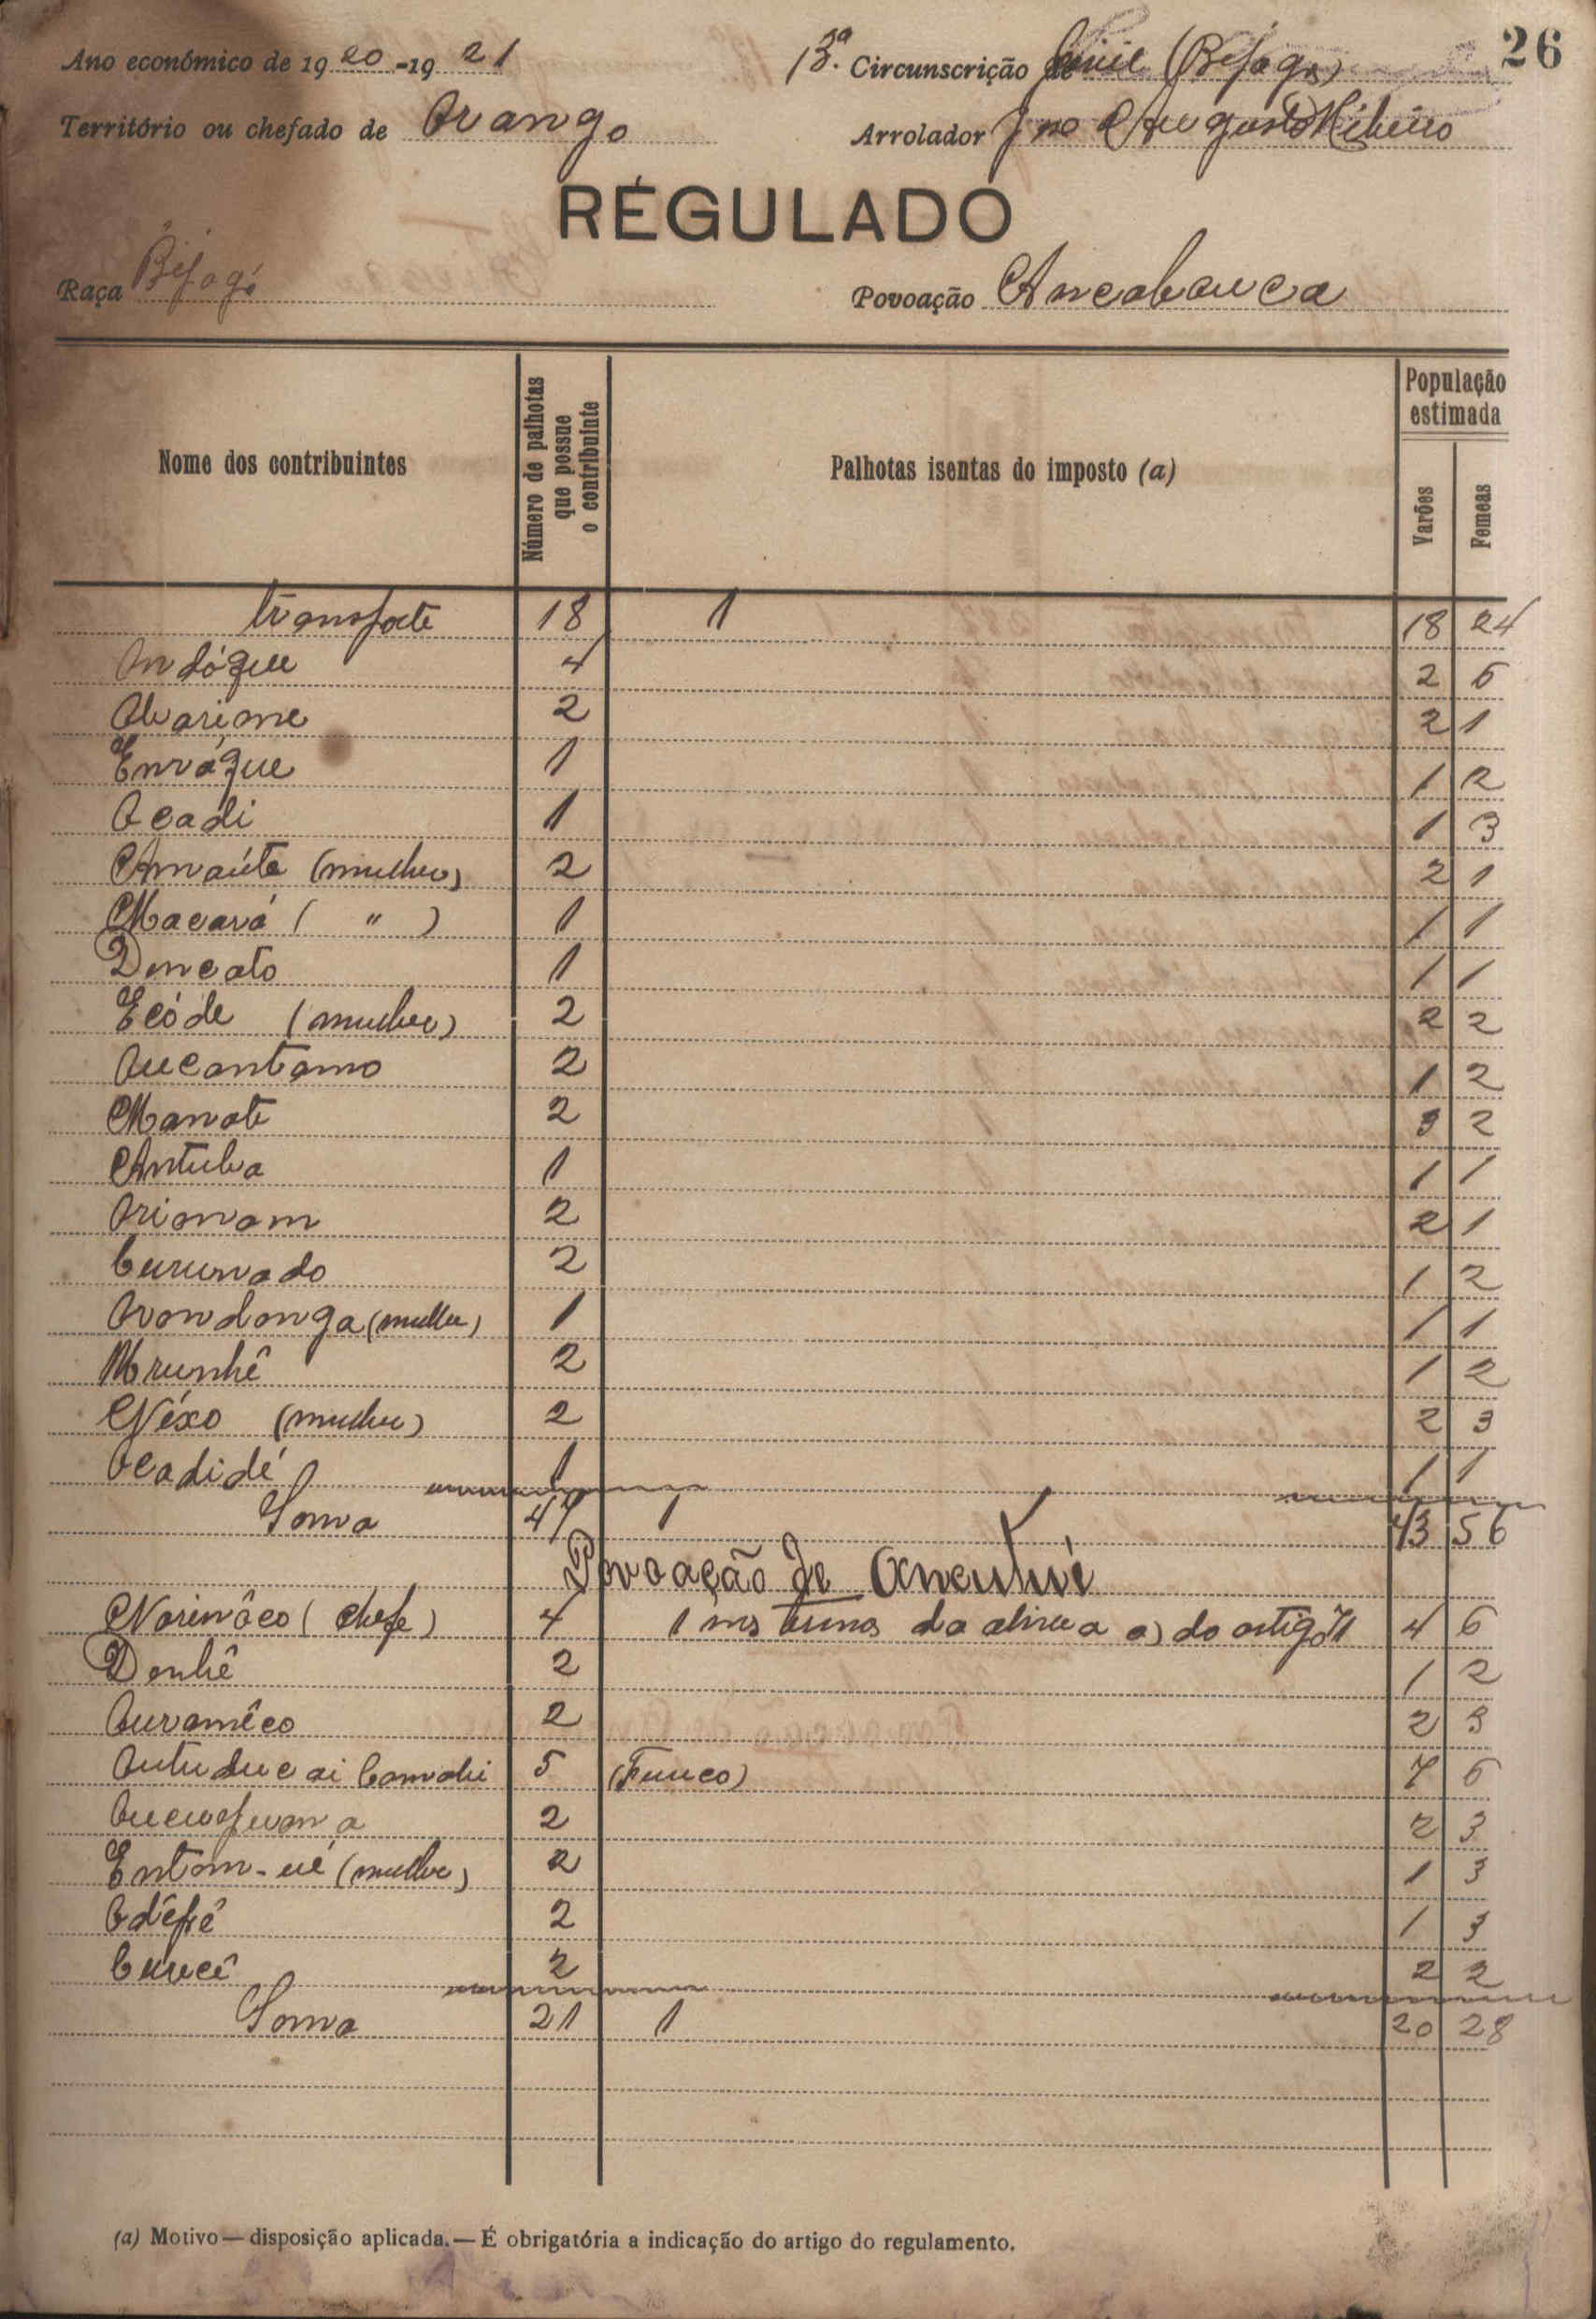 26
Ano económico de 1920-1921 13.ª Circunscrição Civil (Bijagós)
Território ou chefado de Orango Arrolador Augusto Ribeiro
RÉGULADO
Raça Bijagó Povoação Ancabauca
Nome dos contribuintes Número de palhotas que possue o contribuinte Palhotas isentas do imposto (a) População estimada Varões Femeas
transporte 18 1 18 24
Ondóque 4 2 6
2 2 1
Enváque 1 1 2
Ocadi 1 1 3
Amaúta (mulher) 2 2 1
Macavá ( " ) 1 1 1
Doncato 1 1 1
Ecóde (mulher) 2 2 2
Oucantamo 2 1 2
Manate 2 3 2
Antuba 1 1 1
Orimam 2 2 1
Curunado 2 1 2
Orondonga (mulher) 1 1 1
Mrunhê 2 1 2
Néxo (mulher) 2 2 3
Ocadidé 1 1 1
Soma 47 1 43 56
Povoação de
Norinôco (chefe) 4 1 nos termos da alinea a) do artigo 4 6
Donhê 2 1 2
Ouramêco 2 2 3
5 (Funco) 7 6
2 2 3
Entom-ué (mulher) 2 1 3
2 1 3
2 2 2
Soma 21 1 20 28
(a) Motivo — disposição aplicada. — É obrigatória a indicação do artigo do regulamento.